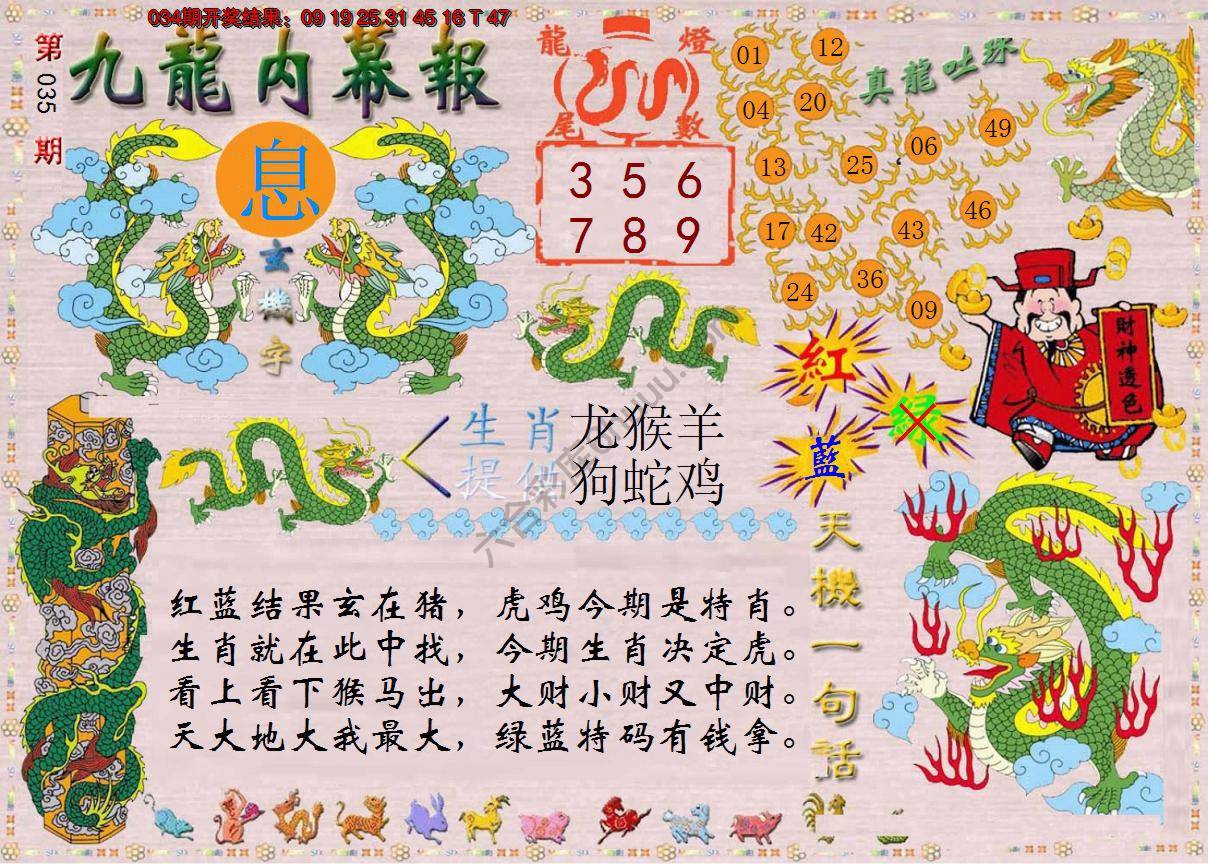 034期开奖结果：09 19 25 31 45 16 T 47
第
035
期
九龍内幕報
息
玄
機
字
龍
燈
尾
數
3 5 6
7 8 9
真龍吐珠
01
12
04
20
13
25
06
49
17
42
43
46
24
36
09
紅
緑
藍
財神透色
生肖
提供
龙猴羊
狗蛇鸡
天機一句話
红蓝结果玄在猪，虎鸡今期是特肖。
生肖就在此中找，今期生肖决定虎。
看上看下猴马出，大财小财又中财。
天大地大我最大，绿蓝特码有钱拿。